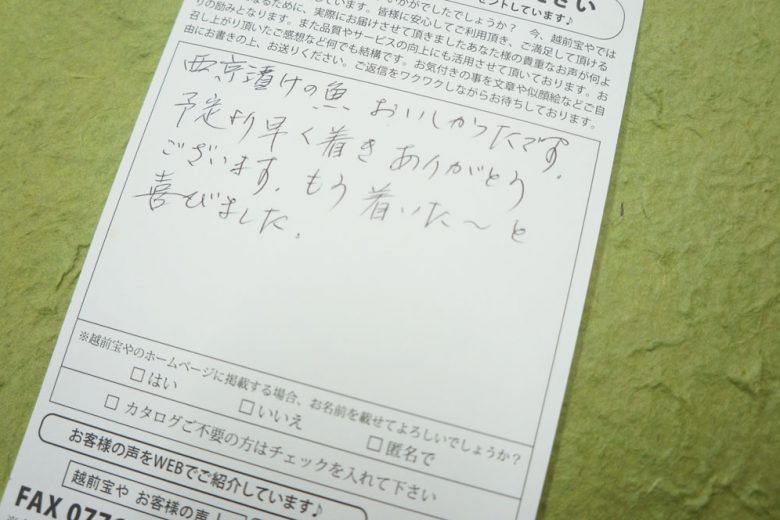 ださい
ゼントしています♪
いかがでしたでしょうか？ 今、越前宝やでは
しています。皆様に安心してご利用頂き、ご満足して頂ける
るために、実際にお届けさせて頂きましたあなた様の貴重なお声が何よ
りの励みとなります。また品質やサービスの向上にも活用させて頂いております。お
召し上がり頂いたご感想など何でも結構です。お気付きの事を文章や似顔絵などご自
由にお書きの上、お送りください。ご返信をワクワクしながらお待ちしております。
西京漬けの魚 おいしかったです。
予定より早く着き ありがとう
ございます。もう着いた〜と
喜びました。
※越前宝やのホームページに掲載する場合、お名前を載せてよろしいでしょうか？
□はい □いいえ □匿名で
□ カタログご不要の方はチェックを入れて下さい
お客様の声をWEBでご紹介しています♪
越前宝や お客様の声
FAX 077